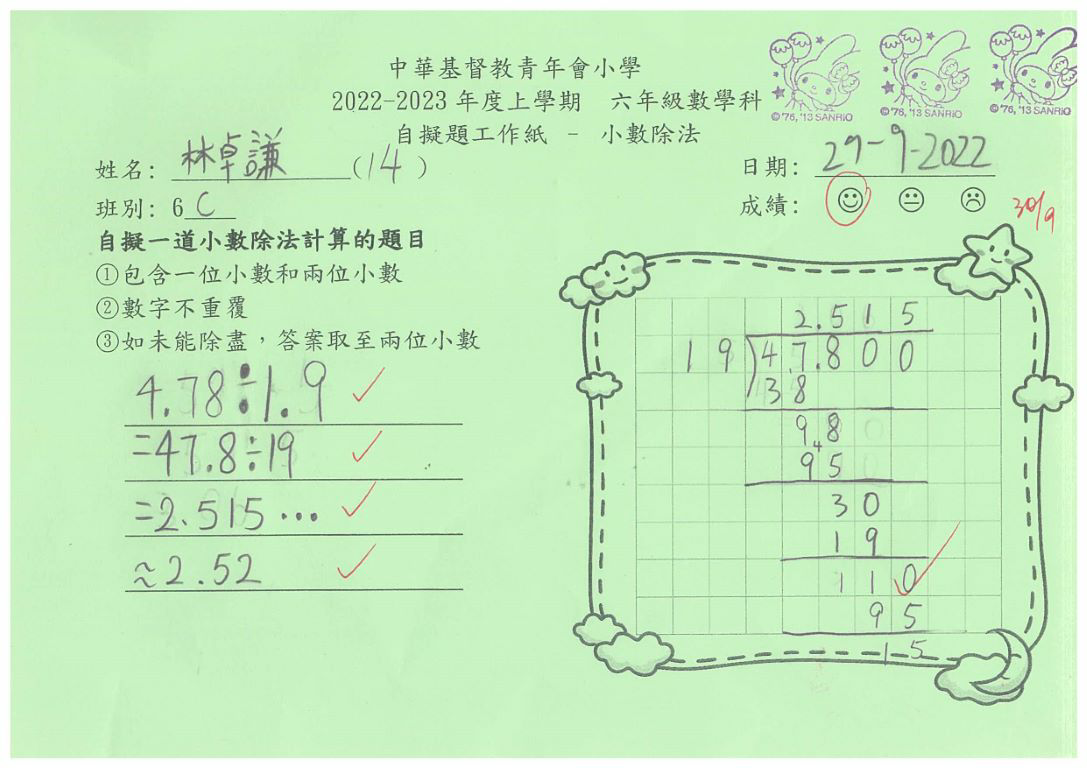 中華基督教青年會小學
2022-2023 年度上學期 六年級數學科
自擬題工作紙 - 小數除法
©'76, '13 SANRIO ©'76, '13 SANRIO ©'76, '13 SANRIO
姓名: 林卓謙 (14)
日期: 29-9-2022
班別: 6 C
成績:
30/9
自擬一道小數除法計算的題目
①包含一位小數和兩位小數
②數字不重覆
③如未能除盡，答案取至兩位小數
4.78÷1.9
=47.8÷19
=2.515…
≈2.52
2.515
19)47.800
38
98
4
95
30
19
110
95
15